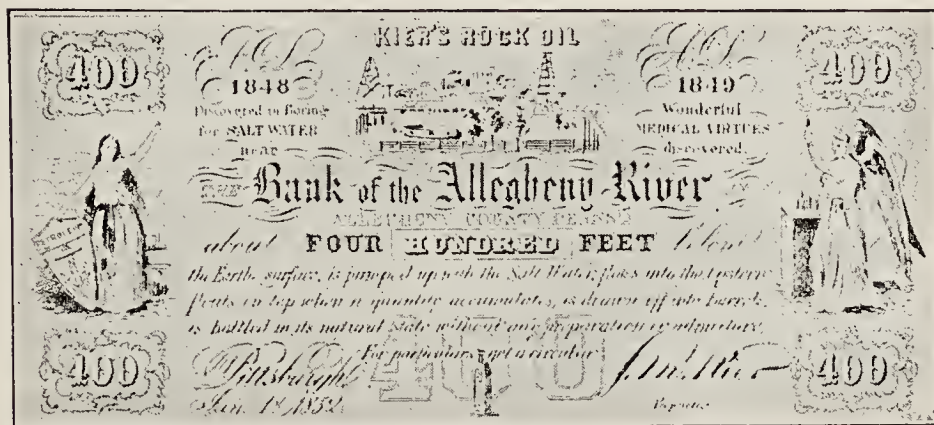 KIER'S ROCK OIL
400
A.D.
1848
Discovered in Boring
for SALT WATER
near
A.D.
1849
Wonderful
MEDICAL VIRTUES
discovered.
400
PETROLEUM
THE Bank of the Allegheny River
ALLEGHENY COUNTY PENNA
about FOUR HUNDRED FEET below
the Earths surface, is pumped up with the Salt Water, flows into the Cistern
floats on top when a quantity accumulates, is drawn off into barrels,
is bottled in its natural state without any preparation or admixture.
For particulars get a circular
400
400
Pittsburgh
Jan. 1st 1852
400
S. M. Kier
Proprietor